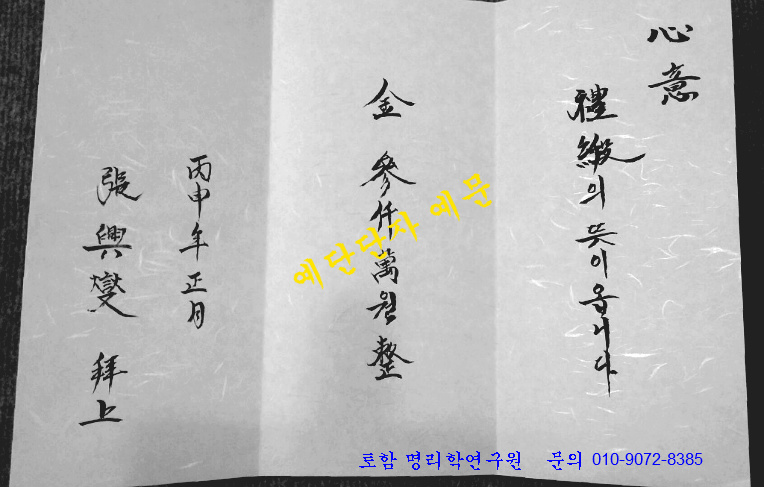 心意
禮緞의 뜻이옵니다
金 參仟萬원整
丙申年 正月
張興燮 拜上
예단단자 예문
로함 명리학연구원 문의 010-9072-8385